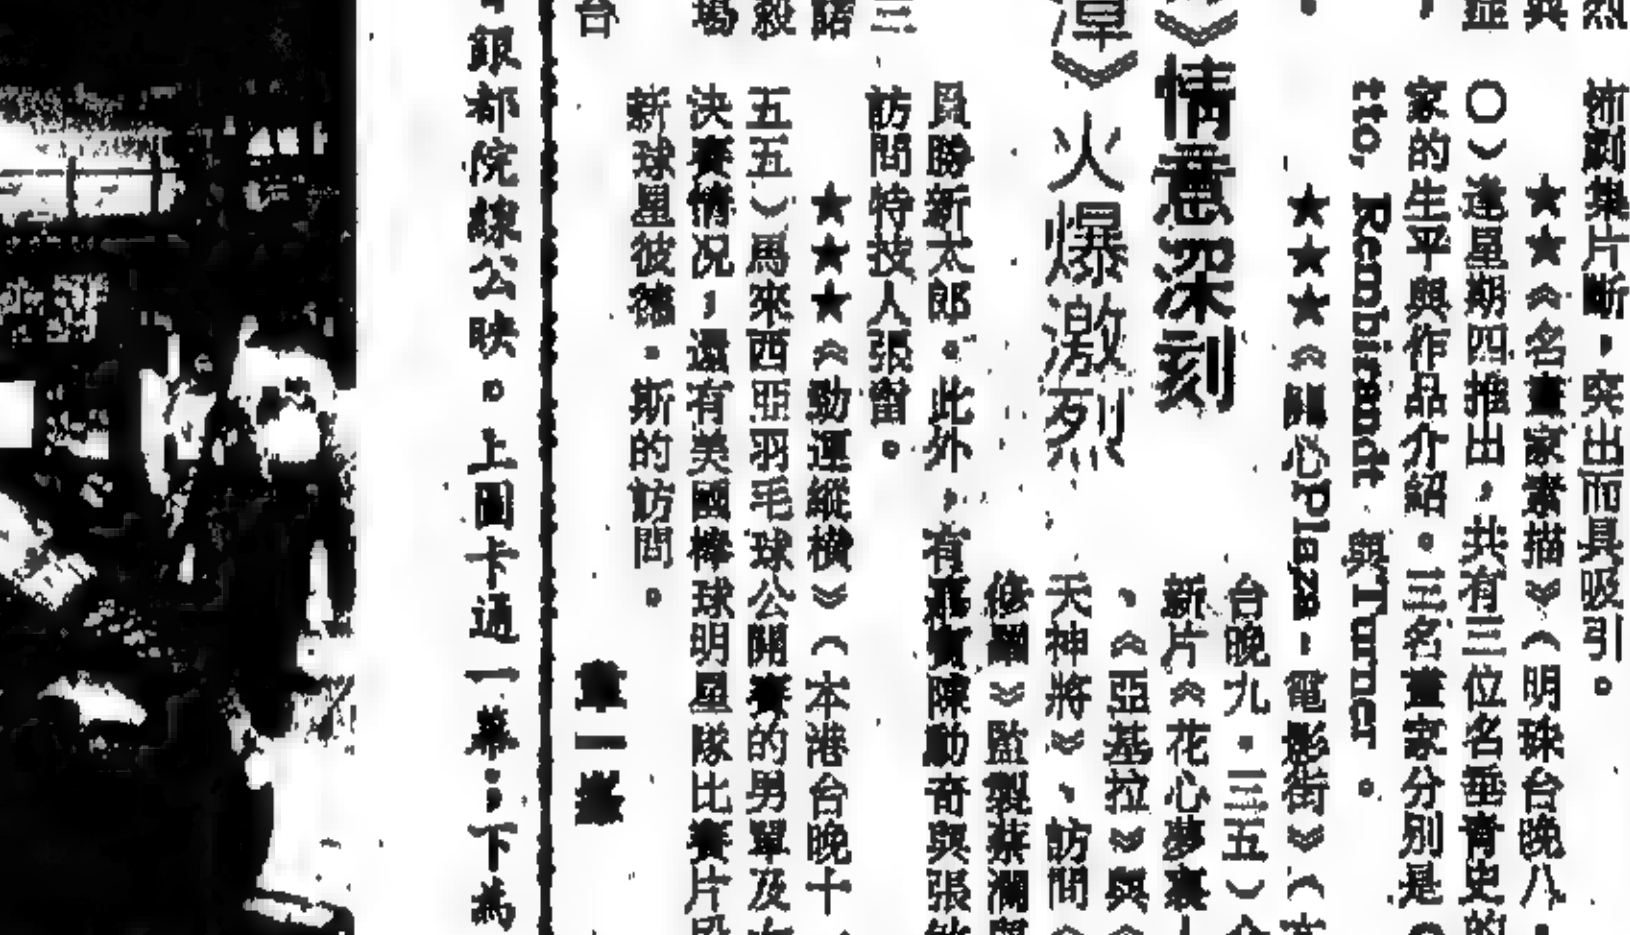 烈
怖刺集片斷，突出而具吸引。
與
★★《名畫家素描》（明珠台晚八．
症
〇）逢星期四推出，共有三位名垂青史的
家的生平與作品介紹。三名畫家分別是
tto, Rembrandt 與Turner。
★★★《開心Plaza－電影街》（本
台晚九．三五）介
新片《花心夢裏人
、《亞基拉》與《
天神將》、訪問《
修羅》監製蔡瀾與
》情意深刻
潭》火爆激烈
三
員勝新太郎。此外，有 陳勳奇與張敏
訪問特技人張留。
諾
★★★《動運縱橫》（本港台晚十
殺
五五）馬來西亞羽毛球公開賽的男單及女
場
決賽情況，還有美國棒球明星隊比賽片段
新球星彼德．斯的訪問。
台
章一
銀都院線公映。上圖卡通一幕；下為